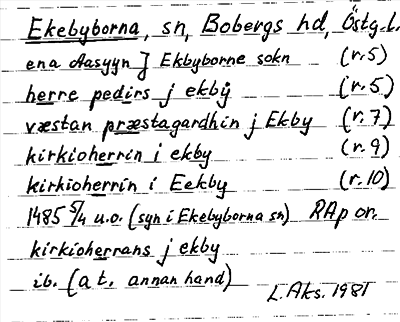 Ekebyborna, sn, Bobergs hd, Östg.l.
ena Aasyyn J Ekbyborne sokn (r.5)
herre pedirs j ekbÿ (r.5)
væstan præstagardhin j Ekby (r.7)
kirkioherrin i ekby (r.9)
kirkioherrin i Eekby (r.10)
1485 5/4 u.o. (syn i Ekebyborna sn) RAp or.
kirkioherrans j ekby
ib. (a t. annan hand)
L. Aks. 1981